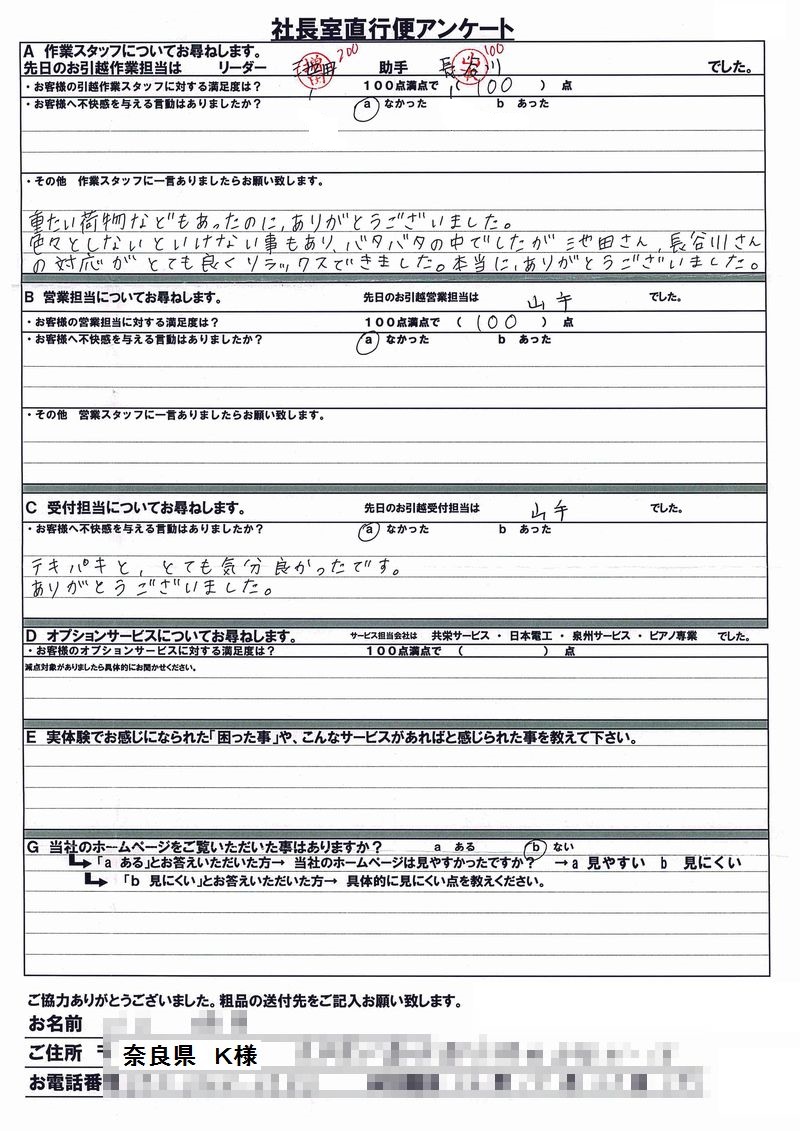 社長室直行便アンケート
A 作業スタッフについてお尋ねします。
先日のお引越作業担当は リーダー 池田 200 助手 長谷川 100 でした。
・お客様の引越作業スタッフに対する満足度は? 100点満点で ( 100 ) 点
・お客様へ不快感を与える言動はありましたか? a なかった b あった
・その他 作業スタッフに一言ありましたらお願い致します。
重たい荷物などもあったのに、ありがとうございました。
色々としないといけない事もあり、バタバタの中でしたが池田さん、長谷川さん
の対応がとても良くリラックスできました。本当に、ありがとうございました。
B 営業担当についてお尋ねします。 先日のお引越営業担当は 山下 でした。
・お客様の営業担当に対する満足度は? 100点満点で ( 100 ) 点
・お客様へ不快感を与える言動はありましたか? a なかった b あった
・その他 営業スタッフに一言ありましたらお願い致します。
C 受付担当についてお尋ねします。 先日のお引越受付担当は 山下 でした。
・お客様へ不快感を与える言動はありましたか? a なかった b あった
テキパキと、とても気分良かったです。
ありがとうございました。
D オプションサービスについてお尋ねします。 サービス担当会社は 共栄サービス ・ 日本電工 ・ 泉州サービス ・ ピアノ専業 でした。
・お客様のオプションサービスに対する満足度は? 100点満点で ( ) 点
減点対象がありましたら具体的にお聞かせください。
E 実体験でお感じになられた「困った事」や、こんなサービスがあればと感じられた事を教えて下さい。
G 当社のホームページをご覧いただいた事はありますか? a ある b ない
「a ある」とお答えいただいた方→ 当社のホームページは見やすかったですか? →a 見やすい b 見にくい
「b 見にくい」とお答えいただいた方→ 具体的に見にくい点を教えください。
ご協力ありがとうございました。粗品の送付先をご記入お願い致します。
お名前
ご住所 〒 奈良県 K様
お電話番